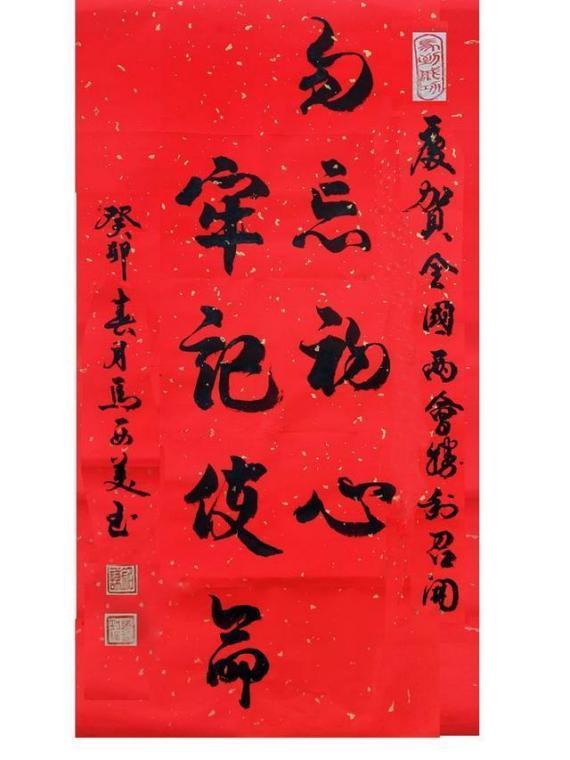 慶賀全國兩會勝利召開
勿忘初心
牢記使命
癸卯春月馬西美書